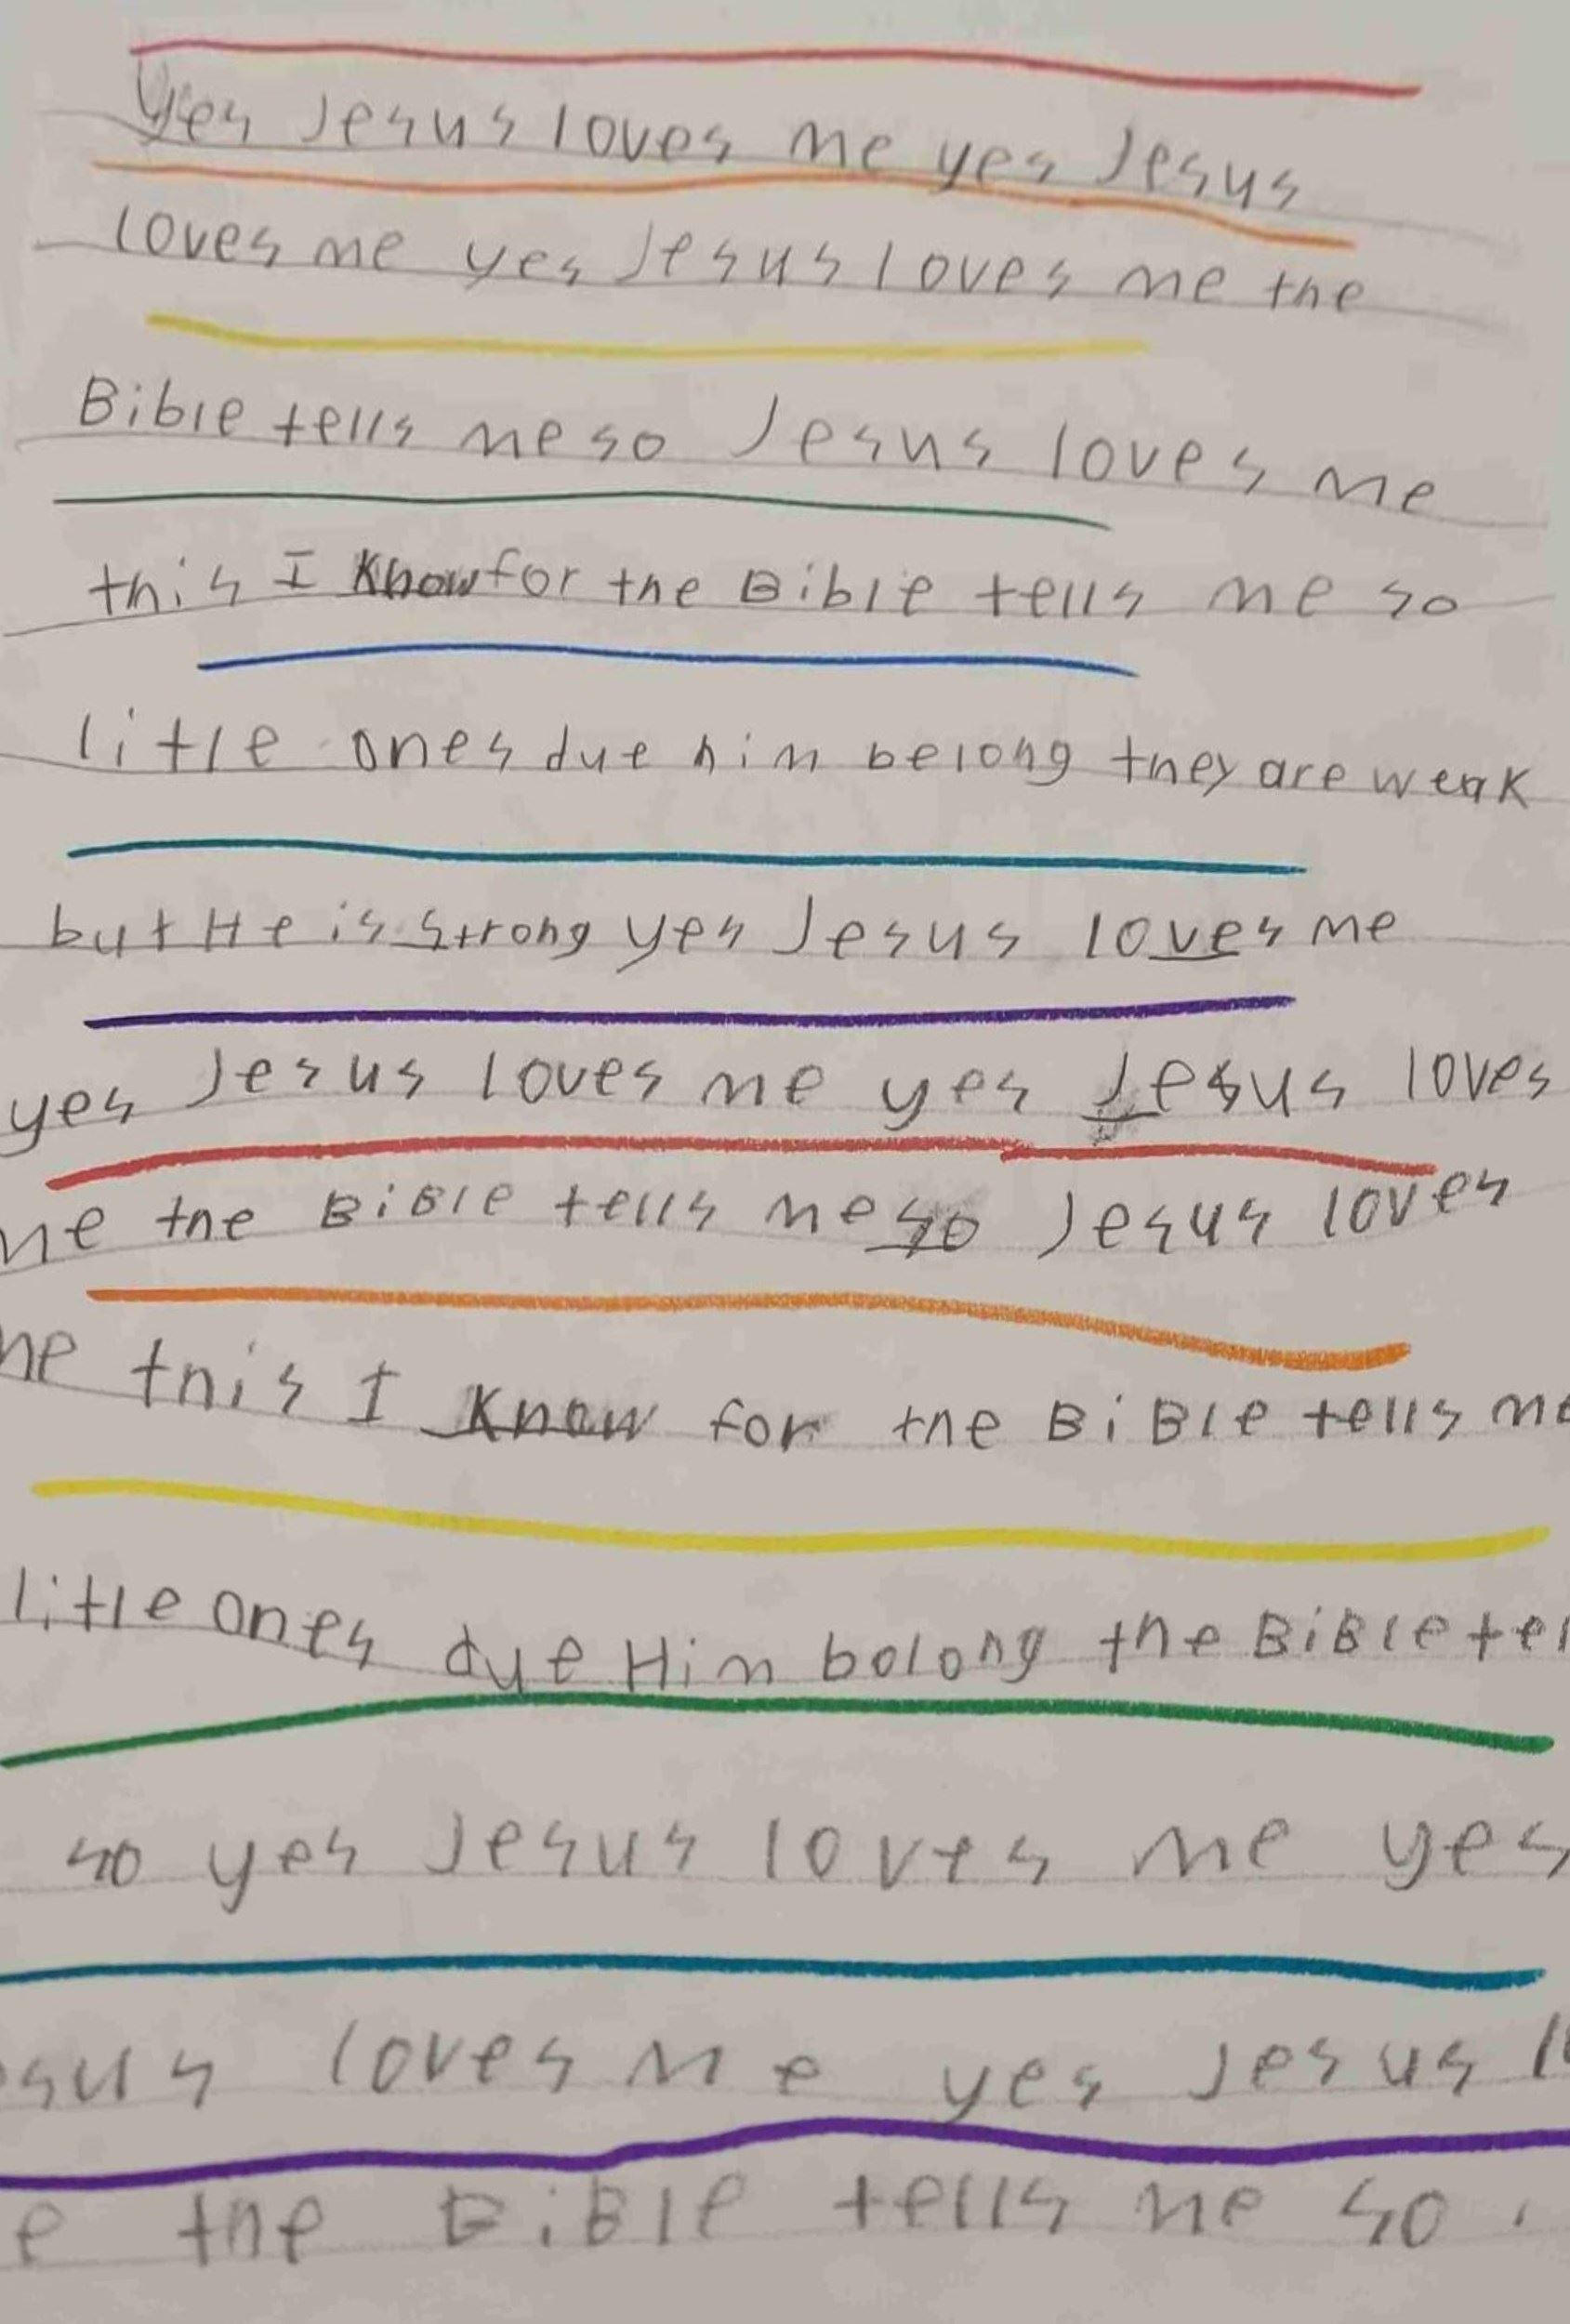 Yes Jesus loves me yes Jesus
loves me yes Jesus loves me the
Bible tells me so Jesus loves me
this I know for the Bible tells me so
litle ones due him belong they are weak
but He is strong yes Jesus loves me
yes Jesus loves me yes Jesus loves
me the BiBle tells me so Jesus loves
me this I know for the BiBle tells me
litle ones due Him bolong the BiBle tel
so yes Jesus loves me yes
esus loves me yes Jesus lo
e the BiBle tells me so.